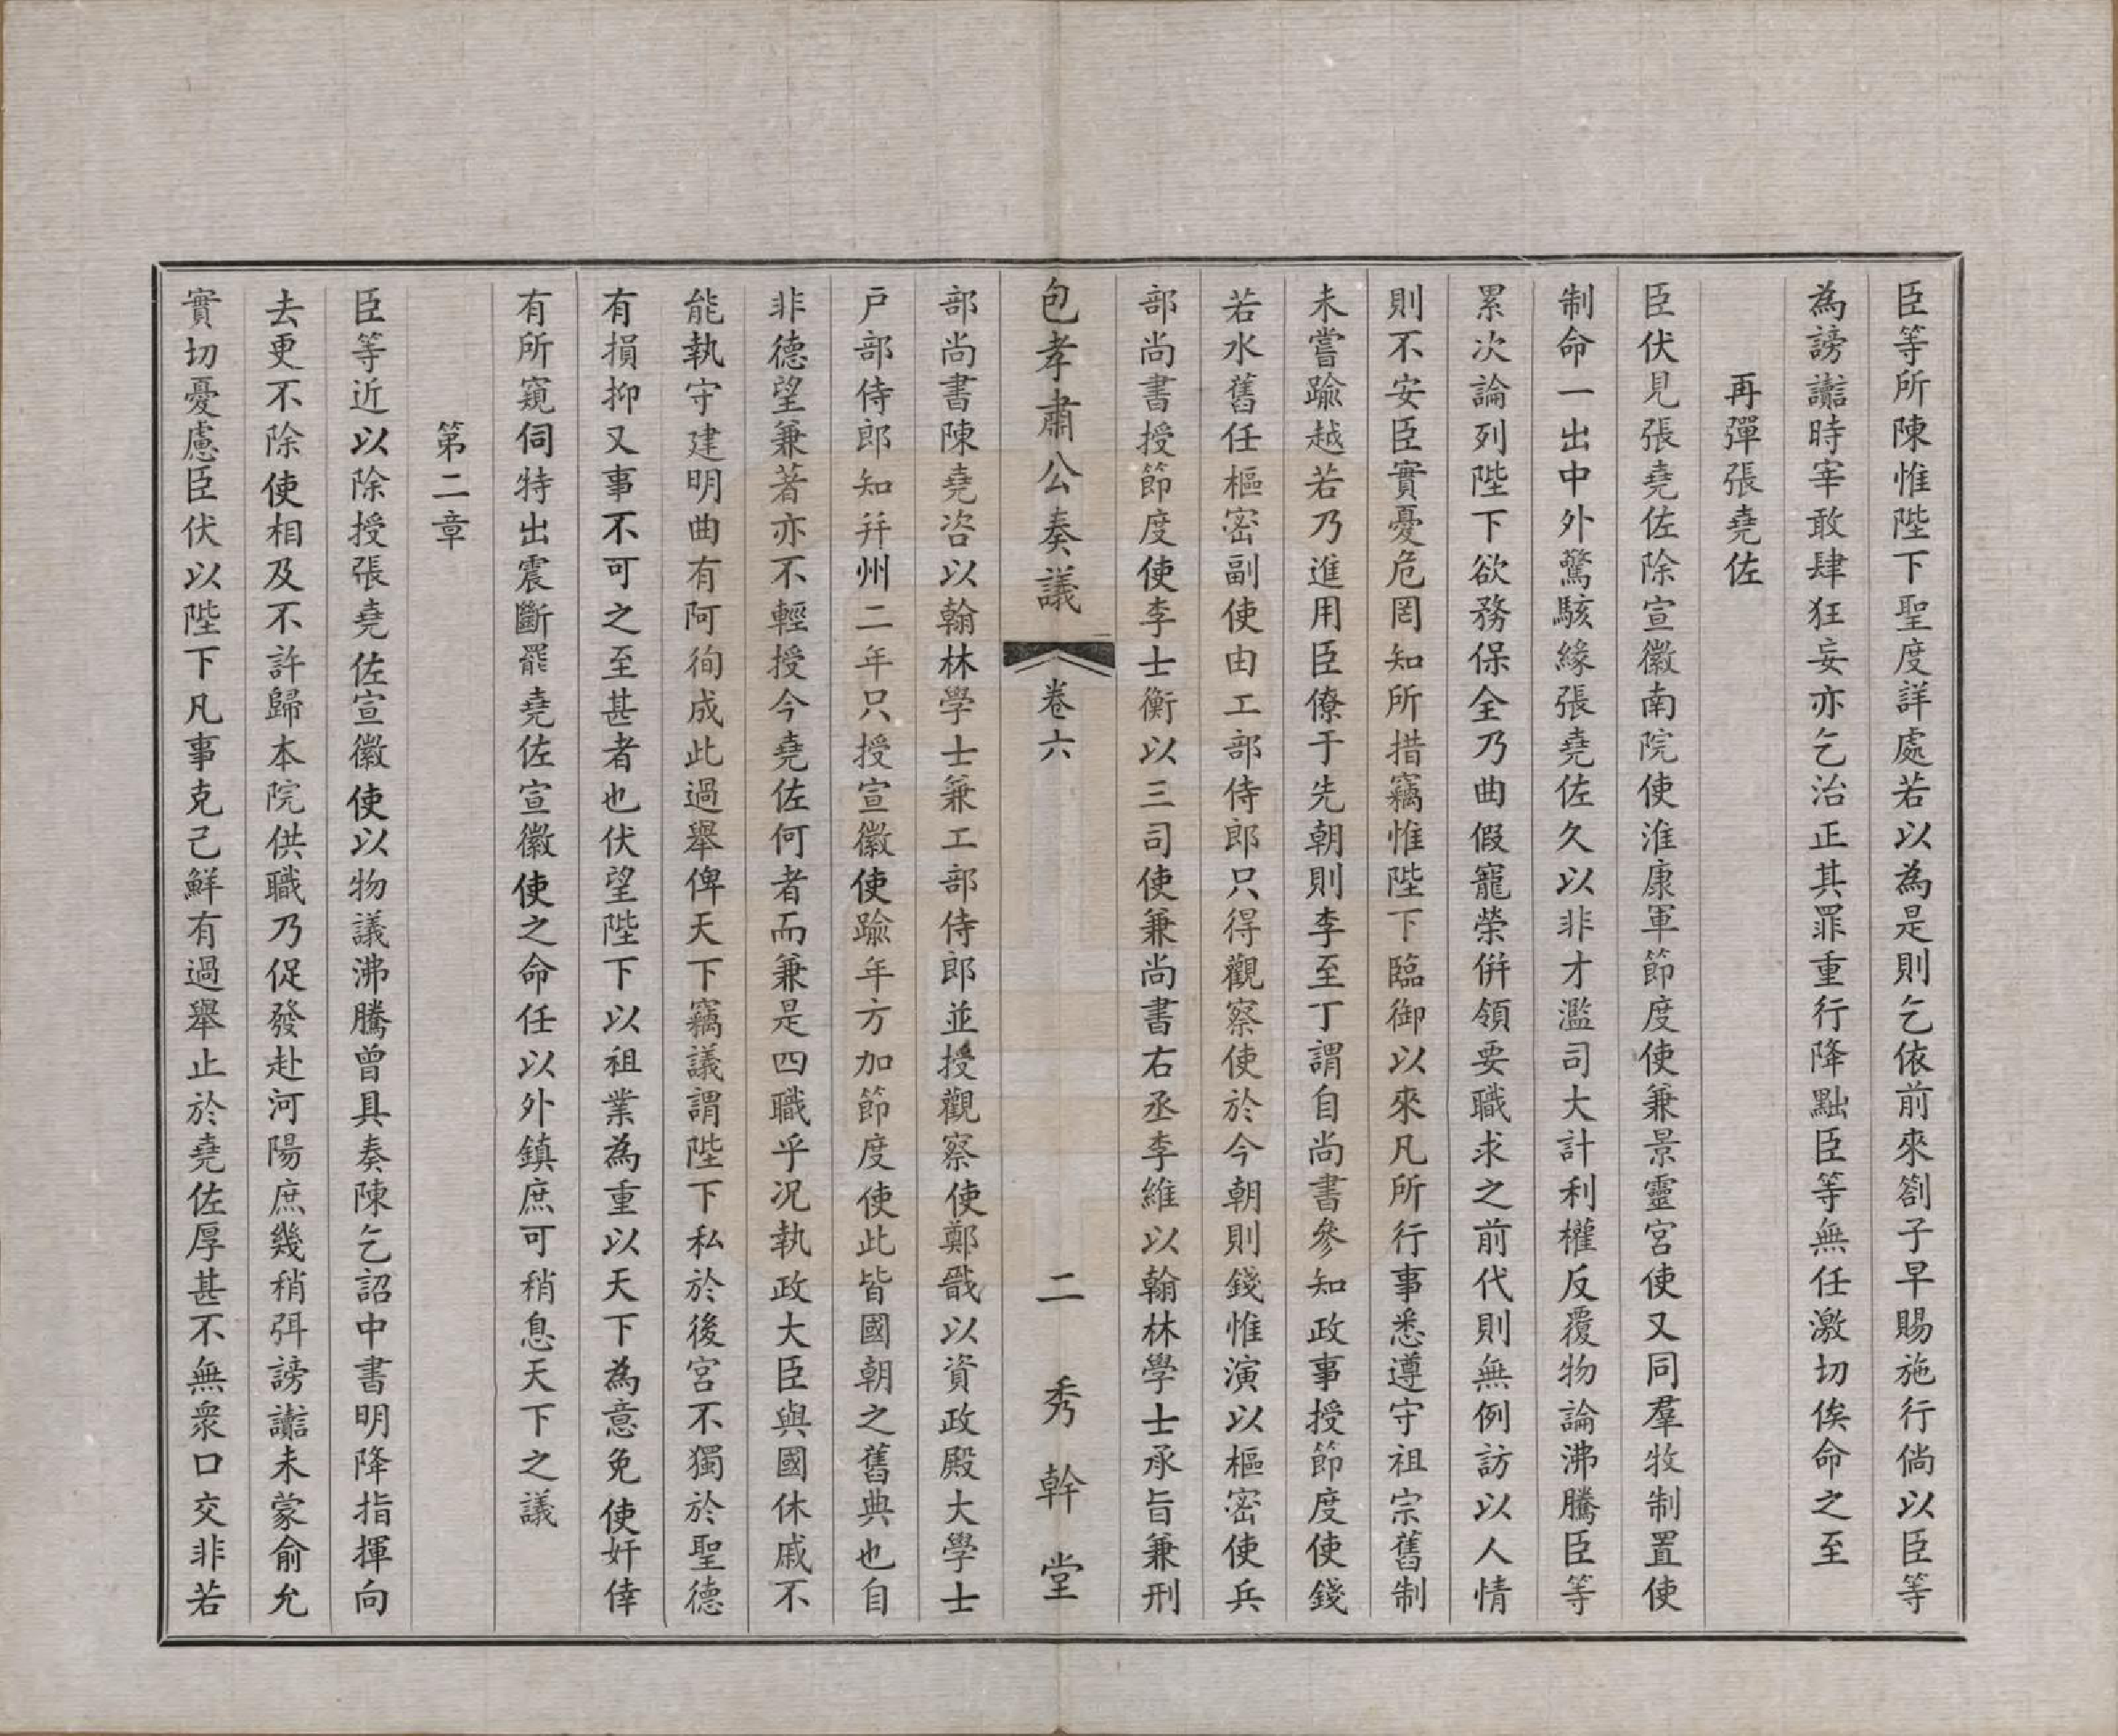 臣等所陳惟陛下聖度詳處若以為是則乞依前來劄子早賜施行倘以臣等
為謗讟時宰敢肆狂妄亦乞治正其罪重行降黜臣等無任激切俟命之至
再彈張堯佐
臣伏見張堯佐除宣徽南院使淮康軍節度使兼景靈宮使又同羣牧制置使
制命一出中外驚駭緣張堯佐久以非才濫司大計利權反覆物論沸騰臣等
累次論列陛下欲務保全乃曲假寵榮併領要職求之前代則無例訪以人情
則不安臣實憂危罔知所措竊惟陛下臨御以來凡所行事悉遵守祖宗舊制
未嘗踰越若乃進用臣僚于先朝則李至丁謂自尚書參知政事授節度使錢
若水舊任樞密副使由工部侍郎只得觀察使於今朝則錢惟演以樞密使兵
部尚書授節度使李士衡以三司使兼尚書右丞李維以翰林學士承旨兼刑
包孝肅公奏議 卷六 二 秀幹堂
部尚書陳堯咨以翰林學士兼工部侍郎並授觀察使鄭戩以資政殿大學士
戶部侍郎知幷州二年只授宣徽使踰年方加節度使此皆國朝之舊典也自
非德望兼著亦不輕授今堯佐何者而兼是四職乎况執政大臣與國休戚不
能執守建明曲有阿徇成此過舉俾天下竊議謂陛下私於後宮不獨於聖德
有損抑又事不可之至甚者也伏望陛下以祖業為重以天下為意免使奸倖
有所窺伺特出震斷罷堯佐宣徽使之命任以外鎮庶可稍息天下之議
第二章
臣等近以除授張堯佐宣徽使以物議沸騰曾具奏陳乞詔中書明降指揮向
去更不除使相及不許歸本院供職乃促發赴河陽庶幾稍弭謗讟未蒙俞允
實切憂慮臣伏以陛下凡事克己鮮有過舉止於堯佐厚甚不無衆口交非若